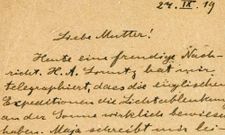 27. IX. 19
Liebe Mutter!
Heute eine freudige Nach-
richt. H. A. Lorentz hat mir
telegraphiert, dass die englischen
Expeditionen die Lichtablenkung
an der Sonne wirklich bewiesen
haben. Maja schreibt mir lei-